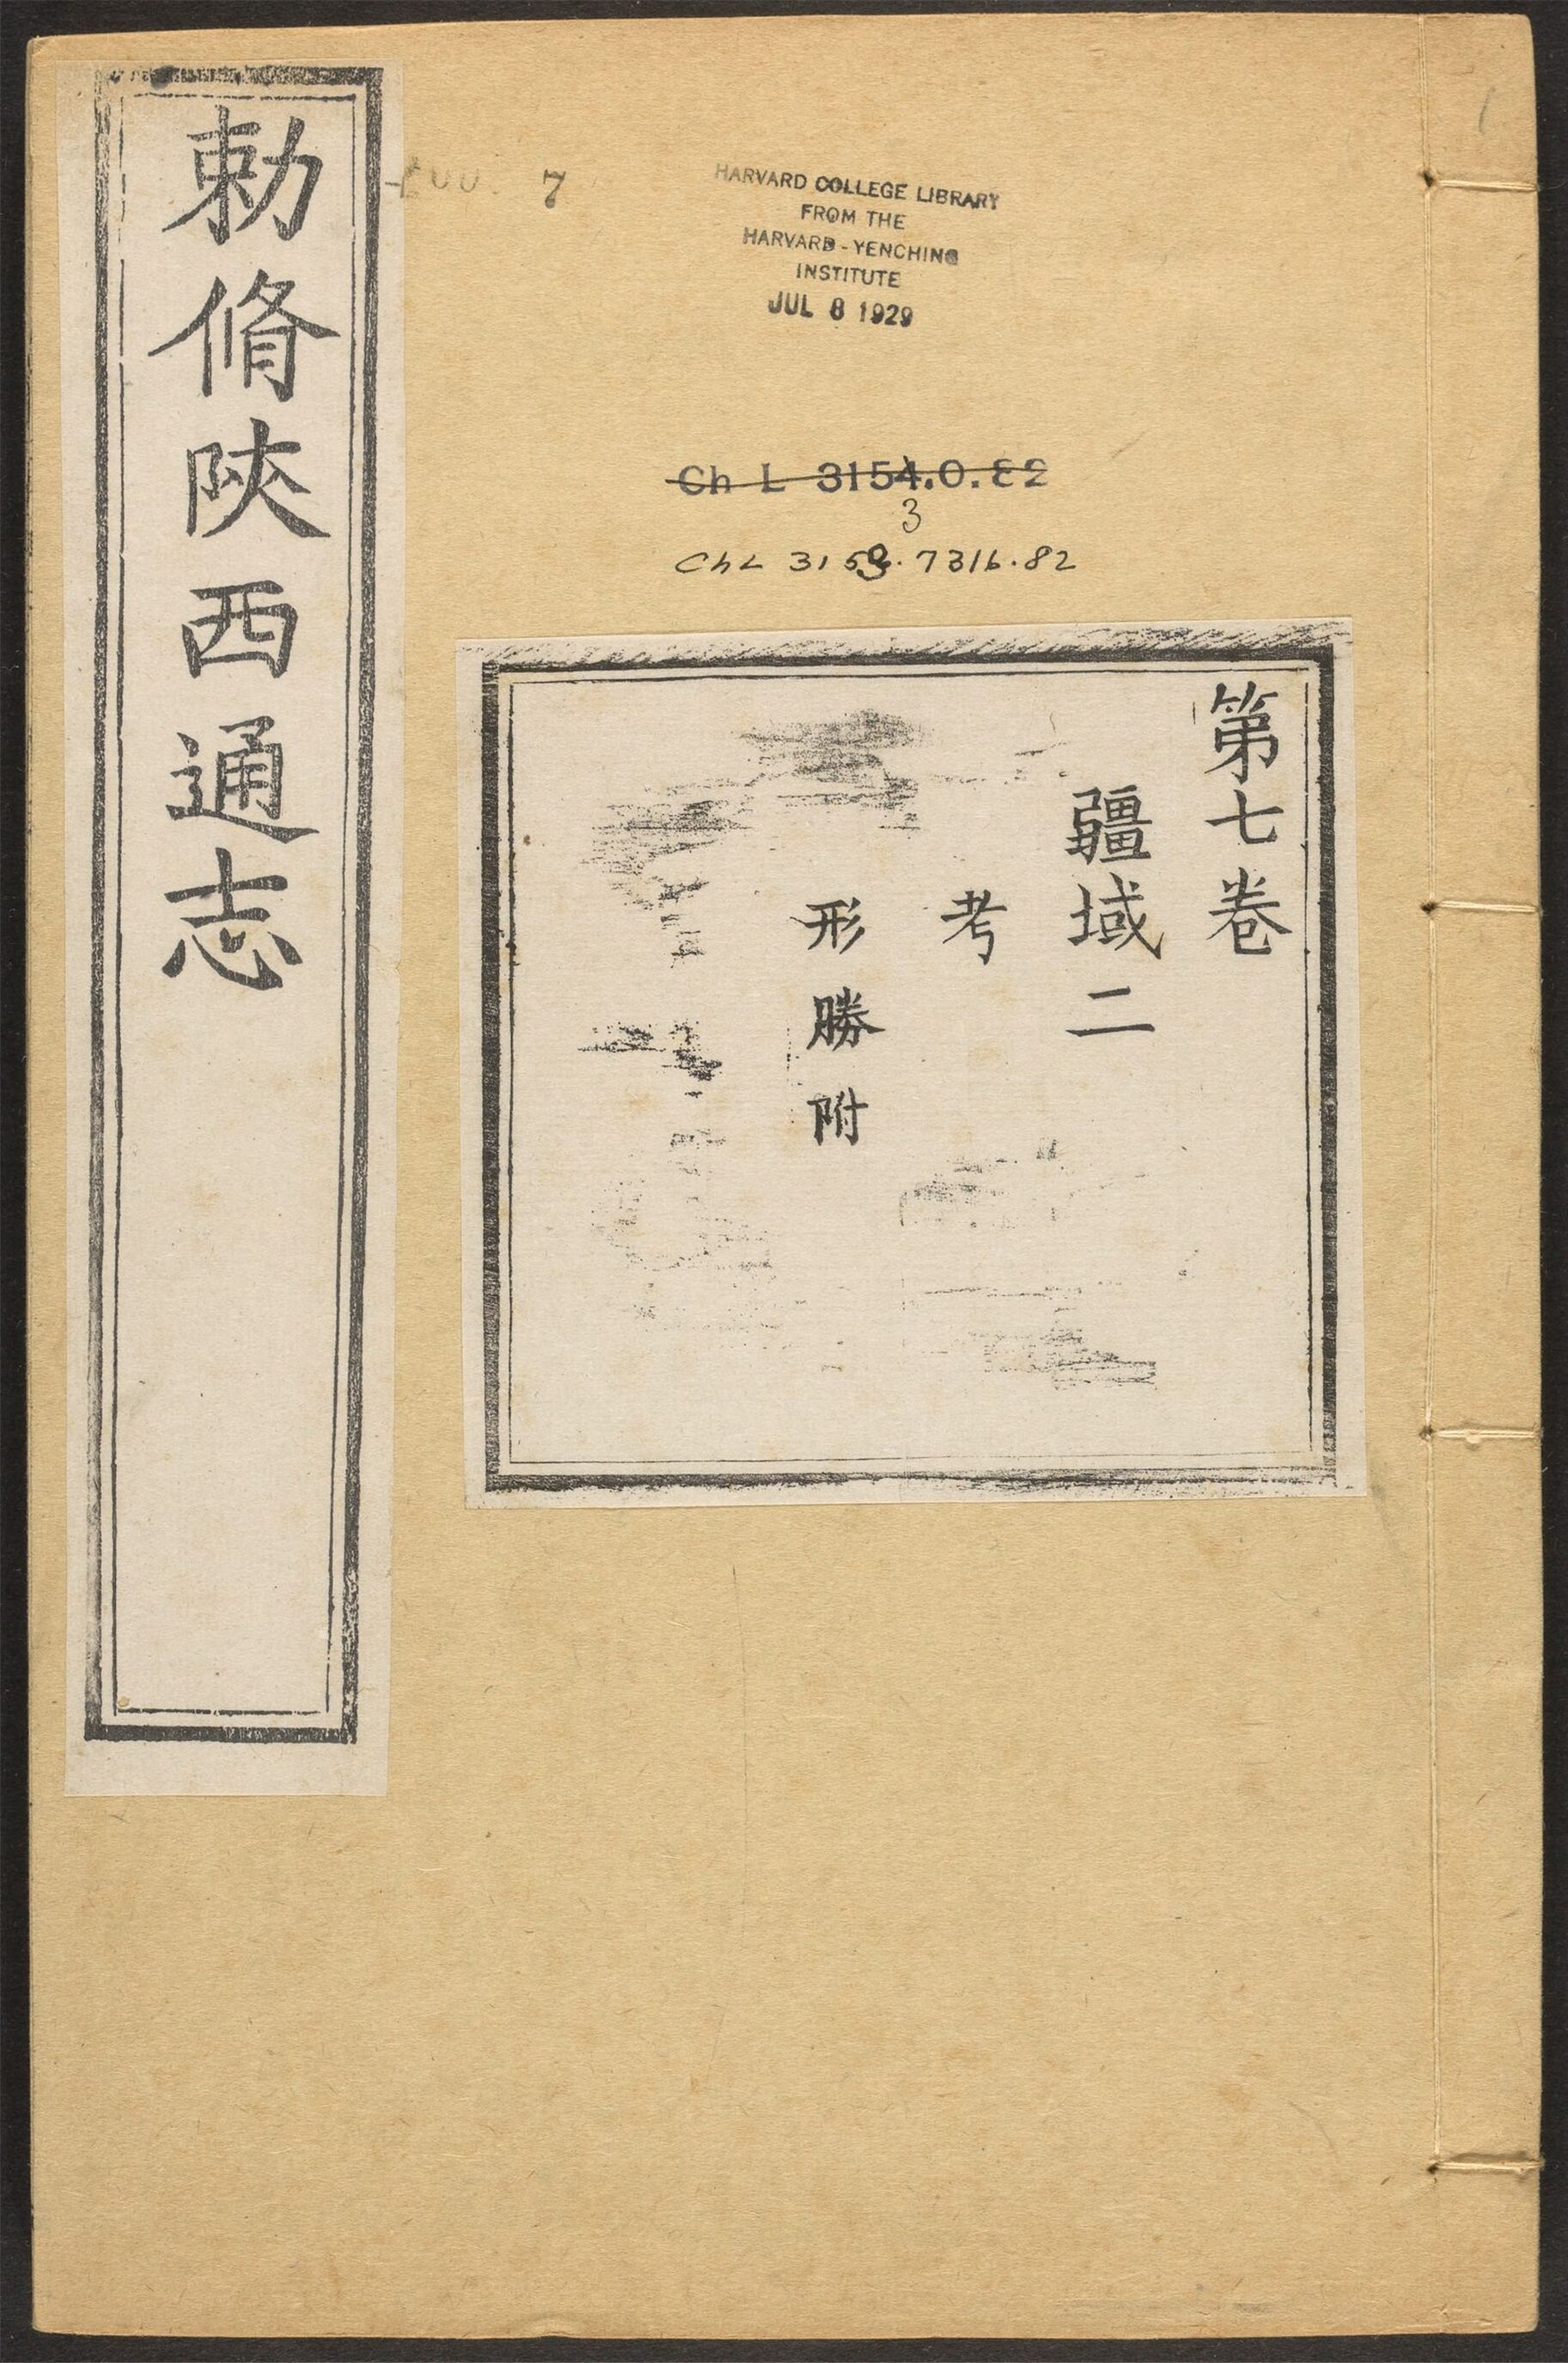 勅脩陝西通志
7
HARVARD COLLEGE LIBRARY
FROM THE
HARVARD-YENCHING
INSTITUTE
JUL 8 1929
Ch L 3154.0.82
3
ChL 3153.7316.82
第七卷
疆域二
考
形勝附